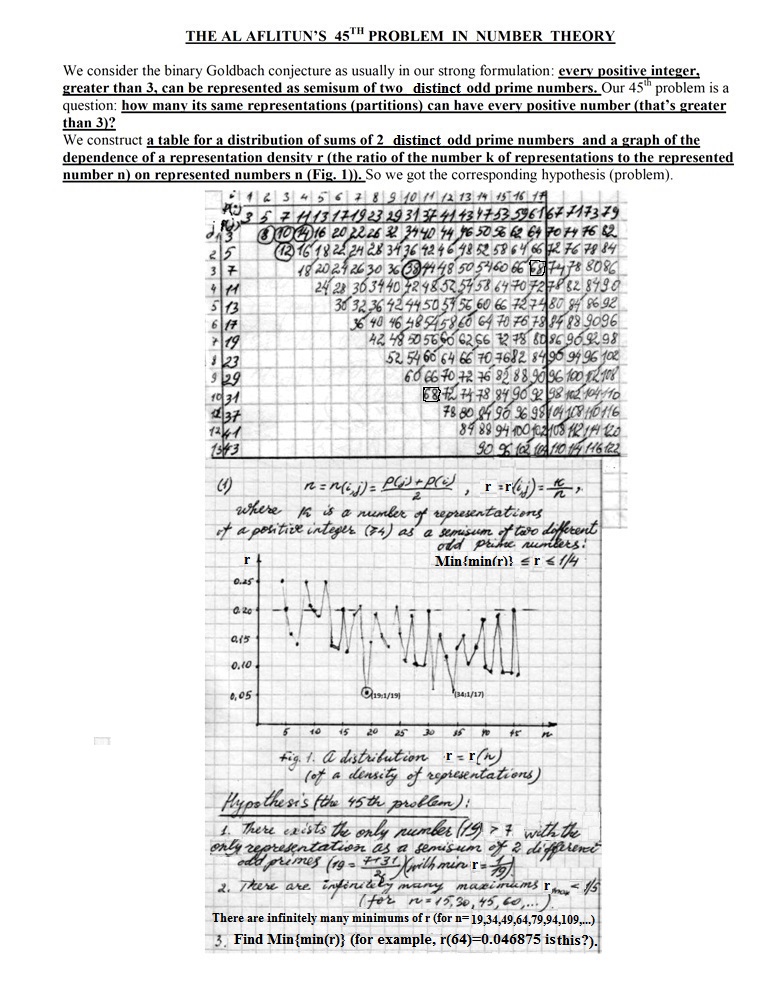 THE AL AFLITUN'S 45TH PROBLEM IN NUMBER THEORY
We consider the binary Goldbach conjecture as usually in our strong formulation: every positive integer,
greater than 3, can be represented as semisum of two distinct odd prime numbers. Our 45th problem is a
question: how many its same representations (partitions) can have every positive number (that's greater
than 3)?
We construct a table for a distribution of sums of 2 distinct odd prime numbers and a graph of the
dependence of a representation density r (the ratio of the number k of representations to the represented
number n) on represented numbers n (Fig. 1)). So we got the corresponding hypothesis (problem).
i 1 2 3 4 5 6 7 8 9 10 11 12 13 14 15 16 17
j P(j) P(i) 3 5 7 11 13 17 19 23 29 31 37 41 43 47 53 59 61 67 71 73 79
1 3 8 10 14 16 20 22 26 32 34 40 44 46 50 56 62 64 70 74 76 82
2 5 12 16 18 22 24 28 34 36 42 46 48 52 58 64 66 72 76 78 84
3 7 18 20 24 26 30 36 38 44 48 50 54 60 66 68 74 78 80 86
4 11 24 28 30 34 40 42 48 52 54 58 64 70 72 78 82 84 90
5 13 30 32 36 42 44 50 54 56 60 66 72 74 80 84 86 92
6 17 36 40 46 48 54 58 60 64 70 76 78 84 88 90 96
7 19 42 48 50 56 60 62 66 72 78 80 86 90 92 98
8 23 52 54 60 64 66 70 76 82 84 90 94 96 102
9 29 60 66 70 72 76 82 88 90 96 100 102 108
10 31 68 72 74 78 84 90 92 98 102 104 110
11 37 78 80 84 90 96 98 104 108 110 116
12 41 84 88 94 100 102 108 112 114 120
13 43 90 96 102 104 110 114 116 122
(1) n = n(i,j) = P(j)+P(i)/2 , r = r(i,j) = k/n ,
where k is a number of representations
of a positive integer (≥4) as a semisum of two different
odd prime numbers:
Min{min(r)} ≤ r ≤ 1/4
r
0.25
0.20
0.15
0.10
0.05
(19:1/19) (34:1/17)
5 10 15 20 25 30 35 40 45 n
Fig. 1. A distribution r = r(n)
(of a density of representations)
Hypothesis (the 45th problem):
1. There exists the only number (19) > 7 with the
only representation as a semisum of 2 different
odd primes (19 = 7+31/2) (with min r = 1/19).
2. There are infinitely many maximums r max < 1/5
(for n = 15, 30, 45, 60, ...)
There are infinitely many minimums of r (for n= 19,34,49,64,79,94,109,...)
3. Find Min{min(r)} (for example, r(64)=0.046875 is this?).